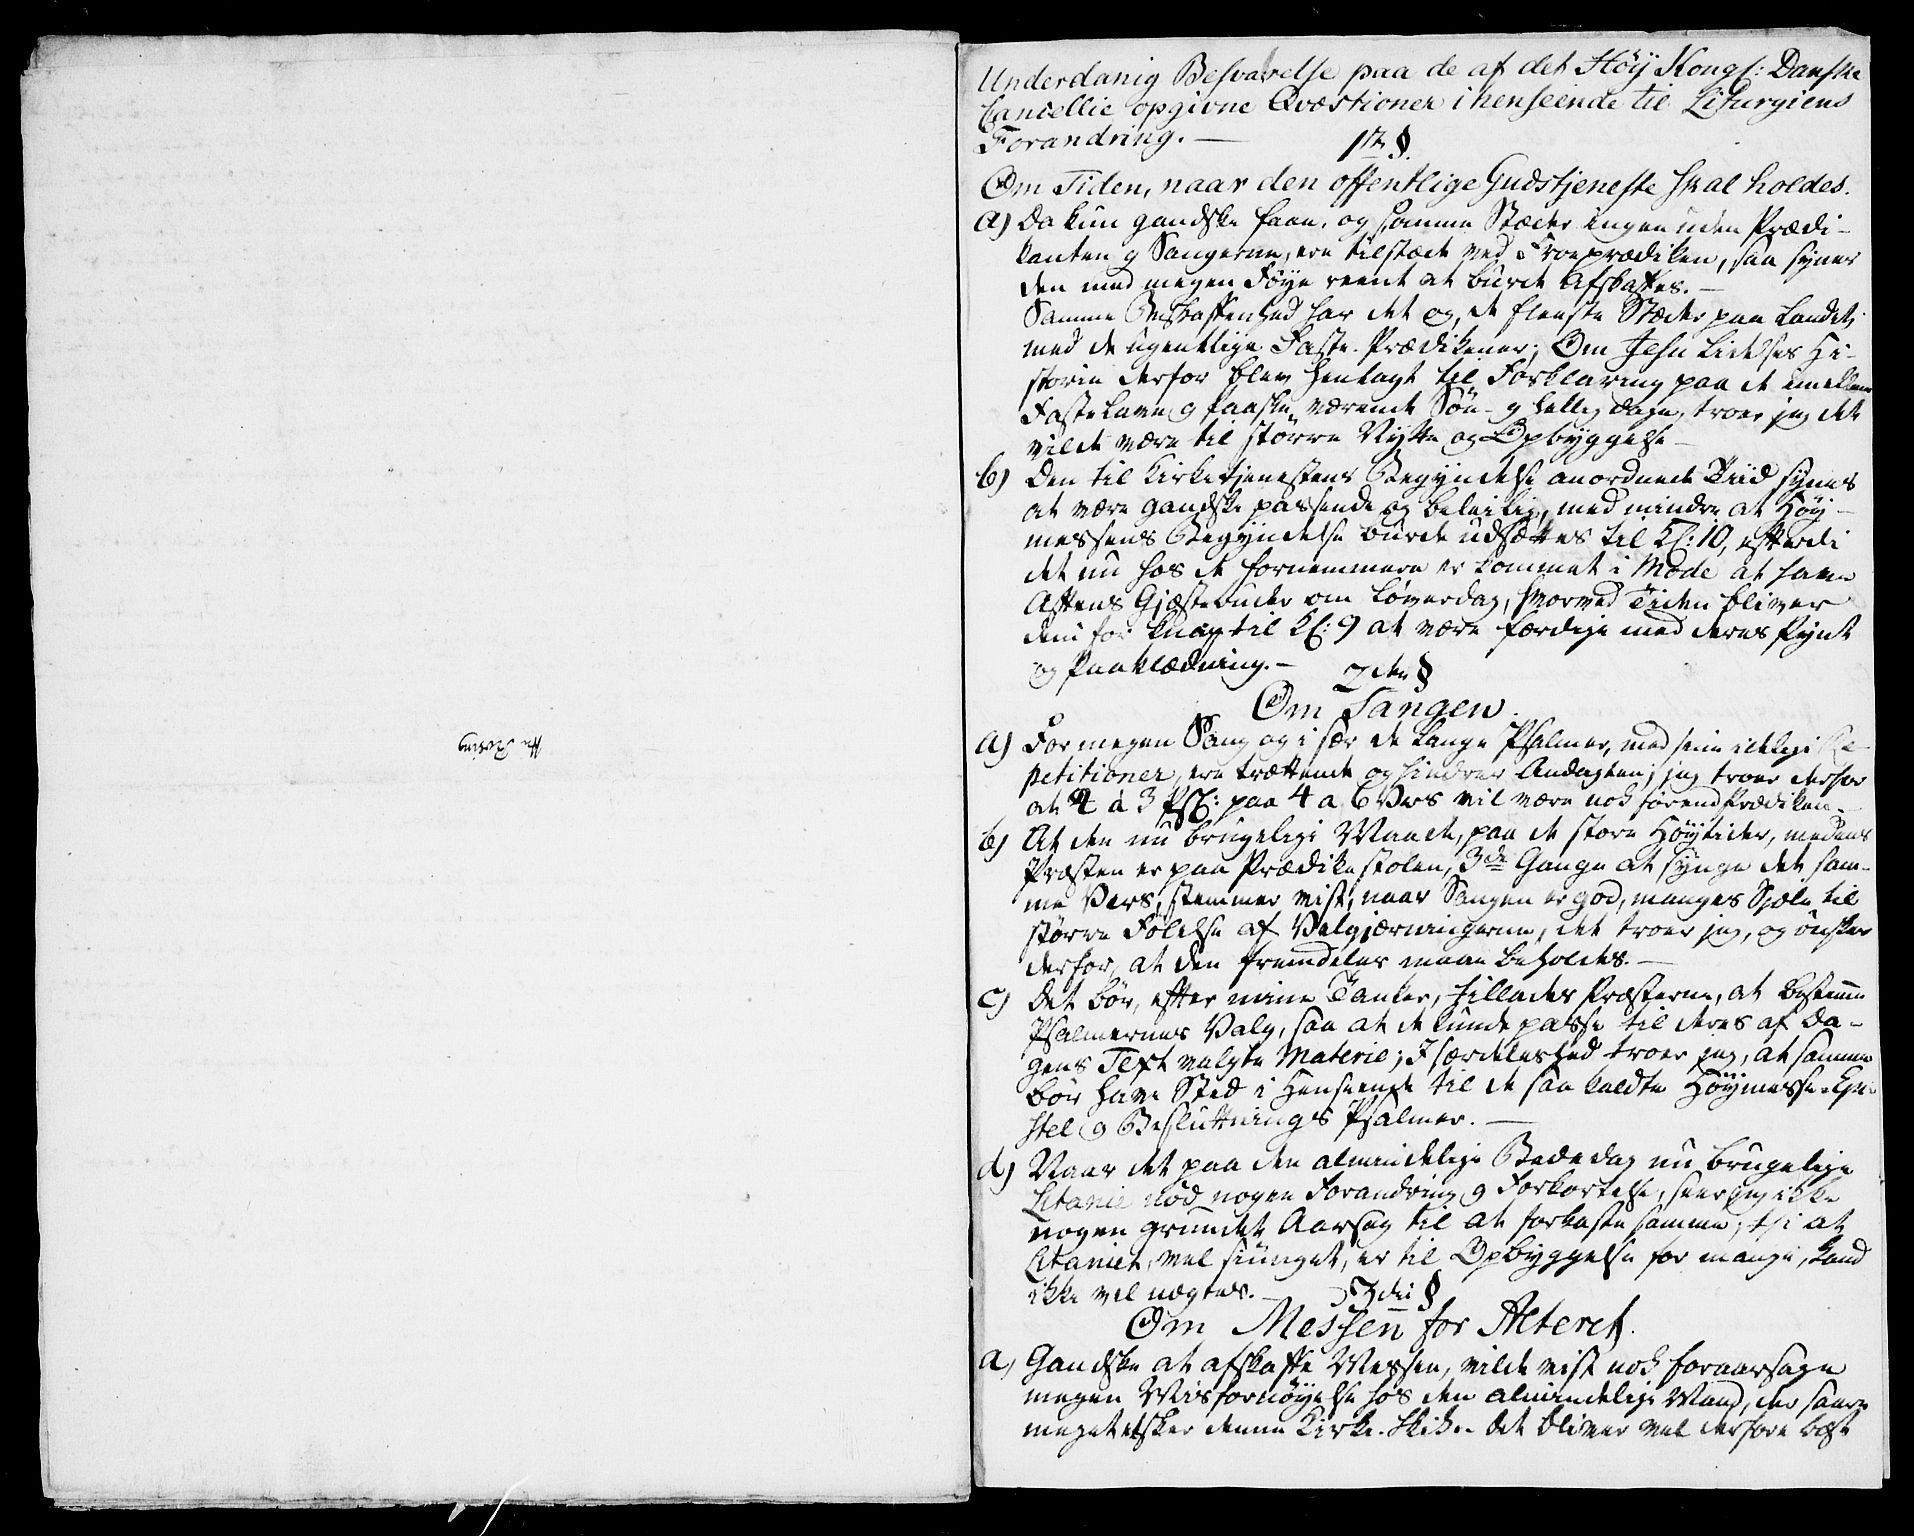 Underdanig Besvarelse paa de af det Høÿ Kongl: Danske
Cancellie opgivne Qvæstioner i henseende til Liturgiens
Forandring. —
1te §.
Om Tiden, naar den offentlige Gudstjeneste skal holdes.
a) Da kun gandske faae, og somme Stæder ingen uden Prædi-
kanten og Sangerne, ere tilstæde ved Froeprædiken, saa synes
den med megen Føye reent at burde Afskaffes. —
Samme Beskaffenhed har det og, de fleeste Stæder paa Landet,
med de ugentlige Faste-Prædikener; Om Jesu Lidelses Hi-
storie derfor blev henlagt til Forklaring paa de imellem
Fastelavn og Paaske værende Søn- og Hellig dage, troer jeg det
vilde være til større Nytte og Opbyggelse —
b) Den til Kirketjenestens Begyndelse anordnede Tiid synes
at være gandske passende og beleilig, med mindre at Høy-
messens Begyndelse burde udsættes til Kl: 10, efterdi
det nu hos de fornemmere er kommet i Mode at have
Aftens Gjæstebuder om Løverdag, hvorved Tiden bliver
dem for knap til Kl: 9 at være færdige med deres Pynt
og Paaklædning. —
2den §
Om Sangen.
a) For megen Sang og i sær de lange Psalmer, med sine idelige Re-
petitioner, ere trættende og hindrer Andagten; jeg troer derfor
at 2 á 3 Psl: paa 4 a 6 Vers vil være nok førend Prædiken. —
b) At den nu brugelige Maade, paa de store Høytider, medens
Præsten er paa Prædikestolen, 3de Gange at synge det sam-
me Vers, stemmer vist, naar Sangen er god, manges Sjæle til
større Følelse af Velgjærningerne, det troer jeg, og ønsker
derfor, at den fremdeles maae beholdes. —
c) Det bør, efter mine Tanker, tillades Præsterne, at bestemme
Psalmernes Valg, saa at de kunde passe til deres af Da-
gens Text valgte Materie; Jsærdeleshed troer jeg, at samme
bør have Sted i Henseende til de saa kaldte Høymesse- Epi-
stel og Beslutnings Psalmer. —
d) Naar det paa den almindelige Bededag nu brugelige
Litanie nød nogen Forandring og Forkortelse, seer jeg ikke
nogen grundet Aarsag til at forkaste samme; thi at
Litaniet, vel siunget, er til Opbyggelse for mange, kand
ikke vel nægtes. —
3die §
Om Messen for Alteret.
a, Gandske at afskaffe Messen, vilde vist nok foraarsage
megen Misfornøyelse hos den almindelige Mand, der saare
meget elsker denne Kirke-Skik. — Det bliver vel derfore best